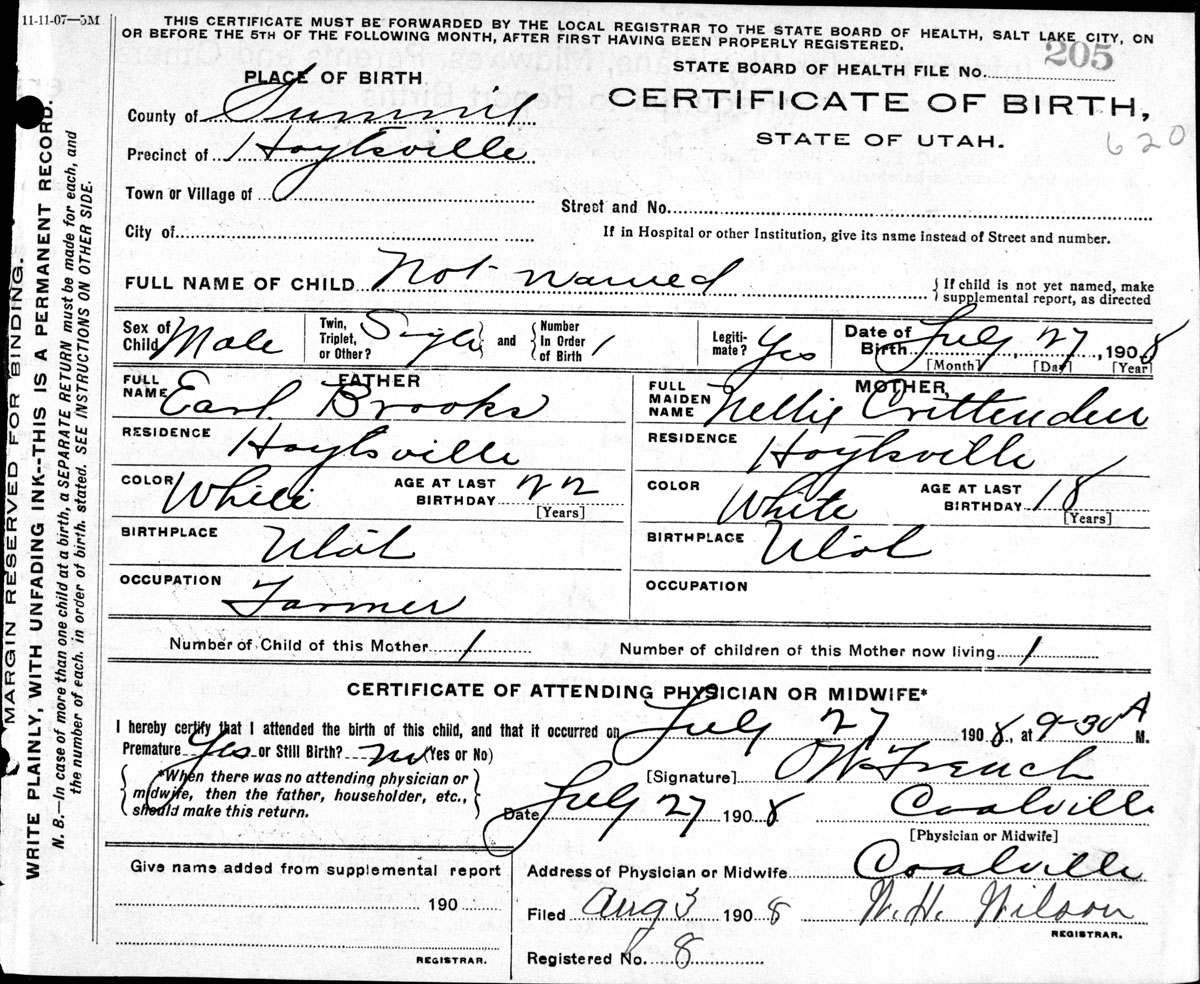 11-11-07—5M
THIS CERTIFICATE MUST BE FORWARDED BY THE LOCAL REGISTRAR TO THE STATE BOARD OF HEALTH, SALT LAKE CITY, ON
OR BEFORE THE 5TH OF THE FOLLOWING MONTH, AFTER FIRST HAVING BEEN PROPERLY REGISTERED.
205
PLACE OF BIRTH
STATE BOARD OF HEALTH FILE No.
CERTIFICATE OF BIRTH,
STATE OF UTAH.
620
County of Summit
Precinct of Hoytsville
Town or Village of
Street and No.
City of
If in Hospital or other Institution, give its name instead of Street and number.
FULL NAME OF CHILD Not named
If child is not yet named, make
supplemental report, as directed
Sex of Child Male
Twin, Triplet, or Other? Single and Number In Order of Birth 1
Legitimate? Yes
Date of Birth July 27, 1908
[Month] [Day] [Year]
FATHER
FULL NAME Earl Brooks
MOTHER,
FULL MAIDEN NAME Nellie Crittenden
RESIDENCE Hoytsville
RESIDENCE Hoytsville
COLOR White AGE AT LAST BIRTHDAY 22 [Years]
COLOR White AGE AT LAST BIRTHDAY 18 [Years]
BIRTHPLACE Utah
BIRTHPLACE Utah
OCCUPATION Farmer
OCCUPATION
Number of Child of this Mother 1
Number of children of this Mother now living 1
CERTIFICATE OF ATTENDING PHYSICIAN OR MIDWIFE*
I hereby certify that I attended the birth of this child, and that it occurred on July 27 1908, at 9-30 A M.
Premature Yes or Still Birth? no (Yes or No)
*When there was no attending physician or
midwife, then the father, householder, etc.,
should make this return.
[Signature] O W French
Date July 27 1908 Coalville
[Physician or Midwife]
Give name added from supplemental report
190
REGISTRAR.
Address of Physician or Midwife Coalville
Filed Aug 3 1908 W. H. Wilson
REGISTRAR.
Registered No. 8
MARGIN RESERVED FOR BINDING.
WRITE PLAINLY, WITH UNFADING INK--THIS IS A PERMANENT RECORD.
N. B.—In case of more than one child at a birth, a SEPARATE RETURN must be made for each, and
the number of each, in order of birth, stated. SEE INSTRUCTIONS ON OTHER SIDE.